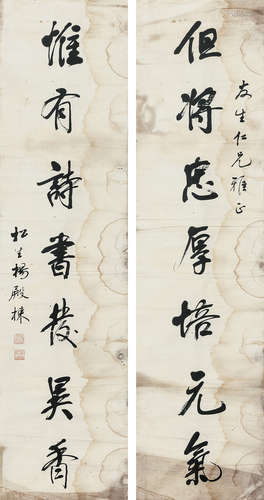 友生仁兄雅正
但將忠厚培元氣
惟有詩書發異香
松生楊殿棟